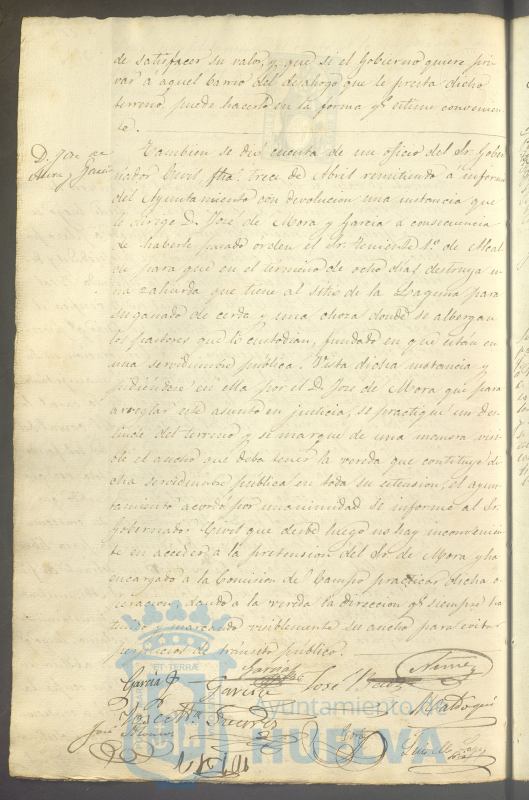 de satisfacer su valor, y que si el Gobierno quiere pri
var á aquel barrio del desahogo que le presta dicho
terreno, puede hacerlo en la forma qe estime convenien
te.
D. José de
Mora y García
Tambien se dio cuenta de un oficio del Sr. Gober
nador Civil, fha. trece de Abril remitiendo a informe
del Ayuntamiento con devolucion una instancia que
le dirige D. José de Mora y García a consecuencia
de haberle pasado orden el Sr. Teniente 1.º de Alcal
de para que en el termino de ocho dias destruya u
na zahurda que tiene al sitio de la Laguna para
su ganado de cerda y una choza donde se albergan
los pastores que lo custodian, fundado en que estan en
una servidumbre publica. Vista dicha instancia y
pidiendose en ella por el D. José de Mora que para
arreglar este asunto en justicia, se practique un des
linde del terreno y se marque de una manera visi
ble el ancho que deba tener la vereda que contituye di
cha servidumbre publica en toda su estension, el ayun
tamiento acordó por unanimidad se informe al Sr.
Gobernador Civil que desde luego no hay inconvenien
te en acceder a la pretension del Sr. de Mora y ha
encargado a la Comision de Campo practicar dicha o
peracion dando a la vereda la direccion qe siempre ha
tenido y marcando visiblemente su ancho para evitar
perjuicios de transito publico.
García
José
ET TERRÆ
Ayuntamiento de
HUELVA